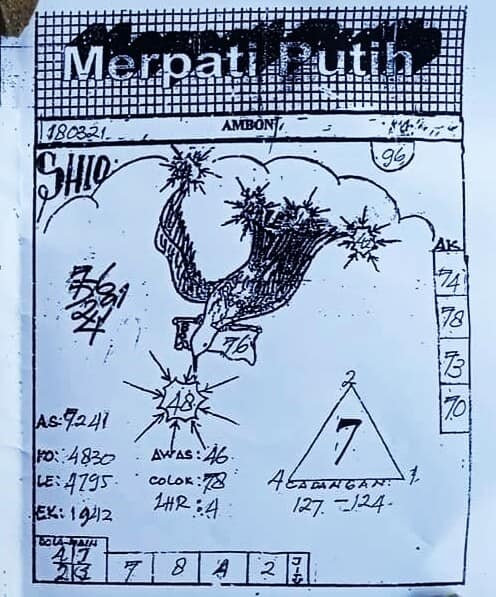 Merpati Putih
AMBON
180321
96
SHIO:
42
AK
74
78
73
70
76
48
2
7
4 1
AS: 7241
KO: 4830
LE: 4795
EK: 1942
AWAS: 46
COLOK: 78
1HR: 4
CADANGAN:
127 - 124
BOLA MAIN
4 7
2
7 8 4 2